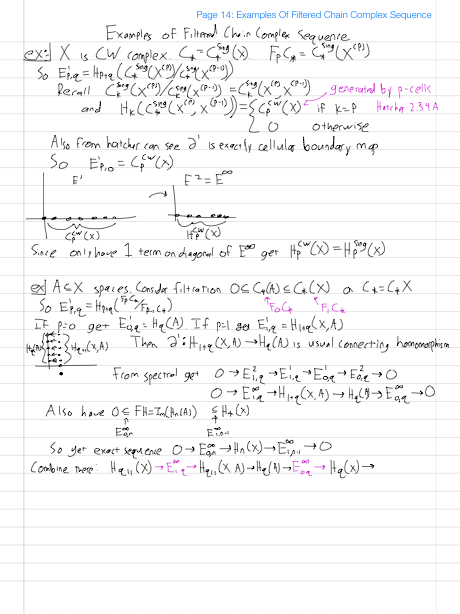 Page 14: Examples Of Filtered Chain Complex Sequence
Examples of Filtered Chain Complex Sequence
ex: X is CW complex. C_* = C_*^{Sing}(X) F_pC_* = C_*^{Sing}(X^{(p)})
So E^1_{p,q} = H_{p+q}(C_*^{Sing}(X^{(p)})/C_*^{Sing}(X^{(p-1)}))
Recall C_k^{Sing}(X^{(p)})/C_k^{Sing}(X^{(p-1)}) = C_k^{Sing}(X^{(p)}, X^{(p-1)}) generated by p-cells
and H_k(C_*^{Sing}(X^{(p)}, X^{(p-1)})) = { C_p^{CW}(X) if k=p Hatcher 2.34A
0 otherwise
Also from hatcher can see ∂^1 is exactly cellular boundary map
So E^1_{p,0} = C_p^{CW}(X)
E^1 → E^2 = E^∞
C_p^{CW}(X) H_p^{CW}(X)
Since only have 1 term on diagonal of E^∞ get H_p^{CW}(X) = H_p^{Sing}(X)
ex) A⊆X spaces. Consider filtration 0 ⊆ C_*(A) ⊆ C_*(X) on C_* = C_*X
So E^1_{p,q} = H_{p+q}(F_pC_*/F_{p-1}C_*) F_0C_* F_1C_*
If p=0 get E^1_{0,q} = H_q(A). If p=1 get E^1_{1,q} = H_{1+q}(X,A)
H_q(A) H_{q+1}(X,A) Then ∂^1: H_{1+q}(X,A) → H_q(A) is usual connecting homomorphism
From spectral get 0 → E^2_{1,q} → E^1_{1,q} → E^1_{0,q} → E^2_{0,q} → 0
0 → E^∞_{1,q} → H_{1+q}(X,A) → H_q(A) → E^∞_{0,q} → 0
Also have 0 ⊆ FH = Im(H_n(A)) ⊆ H_*(X)
E^∞_{0,n} E^∞_{1,n-1}
So get exact sequence 0 → E^∞_{0,n} → H_n(X) → E^∞_{1,n-1} → 0
Combine these: H_{q+1}(X) → E^∞_{1,q} → H_{q+1}(X,A) → H_q(A) → E^∞_{0,q} → H_q(X) →